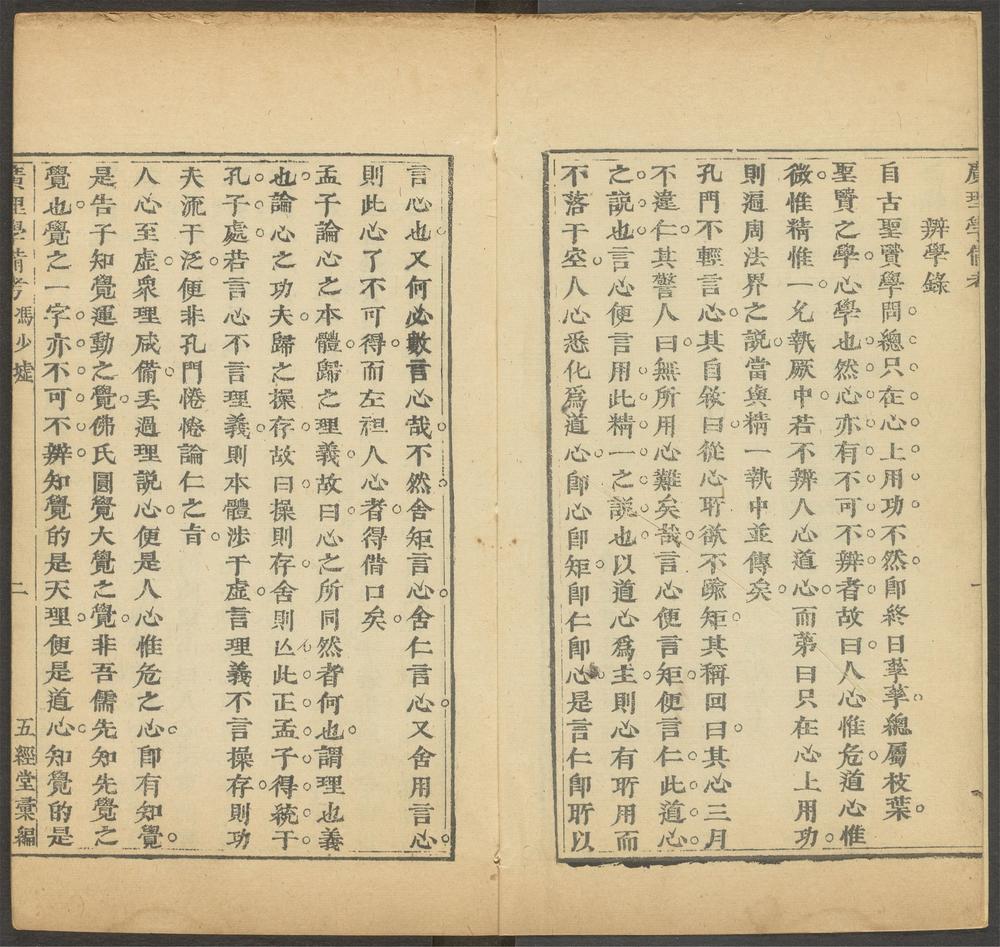 廣理學備考
辨學錄
自古聖賢學問總只在心上用功不然卽終日孳孳總屬枝葉
聖賢之學心學也然心亦有不可不辨者故曰人心惟危道心惟
微惟精惟一允執厥中若不辨人心道心而第曰只在心上用功
則遍周法界之說當與精一執中並傳矣
孔門不輕言心其自敘曰從心所欲不踰矩其稱回曰其心三月
不違仁其警人曰無所用心難矣哉言心便言矩便言仁此道心
之說也言心便言用此精一之說也以道心爲主則心有所用而
不落于空人心悉化爲道心卽心卽矩卽仁卽心是言仁卽所以
一
言心也又何必數言心哉不然舍矩言心舍仁言心又舍用言心
則此心了不可得而左袒人心者得借口矣
孟子論心之本體歸之理義故曰心之所同然者何也謂理也義
也論心之功夫歸之操存故曰操則存舍則亾此正孟子得統于
孔子處若言心不言理義則本體涉于虛言理義不言操存則功
夫流于泛便非孔門惓惓論仁之旨
人心至虛衆理咸備丟過理說心便是人心惟危之心卽有知覺
是告子知覺運動之覺佛氏圓覺大覺之覺非吾儒先知先覺之
覺也覺之一字亦不可不辨知覺的是天理便是道心知覺的是
廣理學備考 馮少墟 二 五經堂彙編